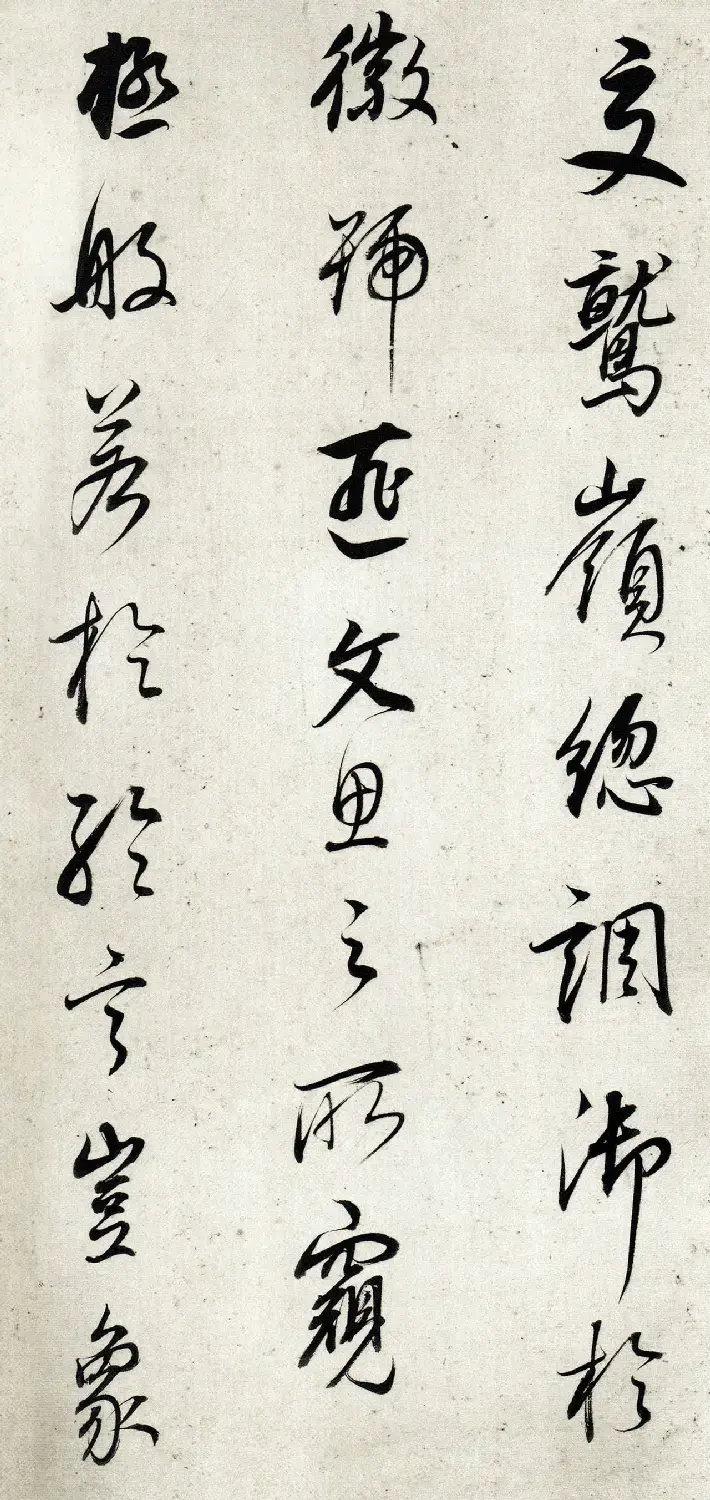 文鷲嶺總調御於
徽號匪文思之所窺
極般若於綸言豈象